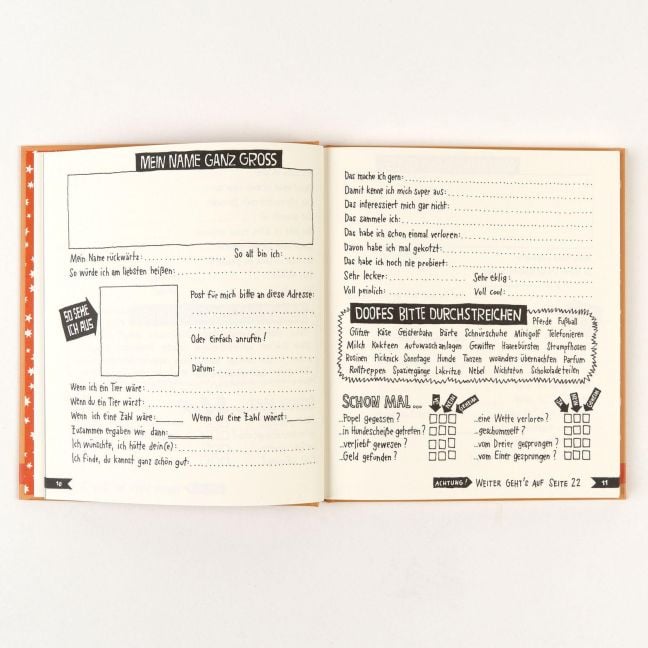 MEIN NAME GANZ GROSS
Mein Name rückwärts: So alt bin ich:
So würde ich am liebsten heißen:
SO SEHE
ICH AUS
Post für mich bitte an diese Adresse:
Oder einfach anrufen!
Datum:
Wenn ich ein Tier wäre:
Wenn du ein Tier wärst:
Wenn ich eine Zahl wäre: Wenn du eine Zahl wärst:
Zusammen ergaben wir dann:
Ich wünschte, ich hätte dein(e):
Ich finde, du kannst ganz schön gut:
10
Das mache ich gern:
Damit kenne ich mich super aus:
Das interessiert mich gar nicht:
Das sammele ich:
Das habe ich schon einmal verloren:
Davon habe ich mal gekotzt:
Das habe ich noch nie probiert:
Sehr lecker: Sehr eklig:
Voll peinlich: Voll cool:
DOOFES BITTE DURCHSTREICHEN
Pferde Fußball
Glitzer Käse Geisterbahn Bärte Schnürschuhe Minigolf Telefonieren
Milch Kakteen Autowaschanlagen Gewitter Haarebürsten Strumpfhosen
Rosinen Picknick Sonntage Hunde Tanzen woanders übernachten Parfum
Rolltreppen Spaziergänge Lakritze Nebel Nichtstun Schokoladeteilen
SCHON MAL...
...Popel gegessen? ...eine Wette verloren?
...in Hundescheiße getreten? ...geschummelt?
...verliebt gewesen? ...vom Dreier gesprungen?
...Geld gefunden? ...vom Einer gesprungen?
ACHTUNG! WEITER GEHT'S AUF SEITE 22
11